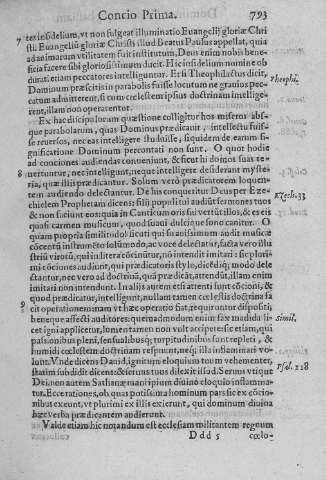 Concio Prima. 793
7 tes infidelium, vt non fulgeat illuminatio Euangelij gloriæ Chri
sti. Euangelium gloriæ Christi illud Beatus Paulus appellat, quia
ad animarum vtilitatem fuit institutum, Deus enim nobis bene-
ficia facere sibi gloriosissimum ducit. Hic infidelium nomine ob
durati, etiam peccatores intelliguntur. Et si Theophilactus dicit,
Theophi.
Dominum præscitis in parabolis fuisse locutum ne grauius pec-
catum admitterent, si cum cœlestem ipsius doctrinam intellige-
rent, illam non operarentur.
Ex hac discipulorum quæstione colligitur hos miseros absque
parabolarum, quas Dominus prædicauit, intellectu fuis-
se reuersos, nec eas intelligere studuisse, siquidem de earum si-
gnificatione Dominum percontati non sunt. O quot hodie
ad conciones audiendas conueniunt, & sicut hi domos suas re-
8 uertuntur, nec intelligunt, neque intelligere desiderant myste-
ria, quæ illis prædicantur. Solum verò prædicatorem loquen-
tem audiendo delectantur. De his conqueritur Deus per Eze-
Ezech. 33
chielem Prophetam dicens: filij populi tui audiūt sermones tuos
& non faciunt eos quia in Canticum oris sui vertūt illos, & es eis
quasi carmen musicum, quod suaui dulcique sono canitur. O
quàm propria similitudo! sicuti qui suauissimum audit musicæ
cōcentū instrumēto solùm odo, ac voce delectatur, facta vero illu
striū virorū, qui in litera cōcinūtur, nō intendit imitari: sic pluri
mi cōciones audiunt, quia prædicatoris stylo, dicēdiq; modo dele
ctantur, nec vero ad doctrinā, quā prædicāt, attendūt, illam enim
imitari non intendunt. In alijs autem etsi attenti sunt cōcioni, &
quod prædicatur, intelligunt, nullam tamen cœlestis doctrina fa
9 cit operationem: nam vt hæc operatio fiat, requiruntur dispositi,
beneque affecti auditores: quemadmodum enim fax madida li-
Simil.
cet igni applicetur, lomentamen non vult accipere: sic etiam, qui
passionibus pleni, sensualibusq; turpitudinibus sunt repleti, &
humidi cœlestem doctrinam respuunt, nec illa inflammari vo-
lunt. Vnde dicens Dauid, ignitum eloquium tuum vehementer,
Psal. 118
statim subdidit dicens: & seruus tuus dilexit illud. Seruus vtique
Dei, non autem Sathanæ mancipium diuino eloquio inflamma-
tur. Et certationes, ob quas potissima hominum pars sic ex cōcio-
nibus exeunt, vt plurimi ex illis exierunt, qui dominum diuina
hæc verba prædicantem audierunt.
Valde etiam hic notandum est ecclesiam militantem regnum
Ddd 5 cœlo-